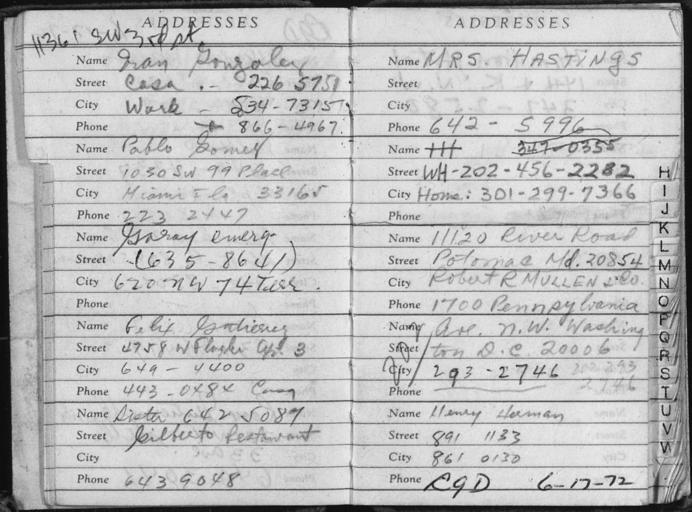 ADDRESSES
11361 SW 3rd pt
Name Ivan Gonzalez
Street Casa .- 226 5751
City Work - 534-7315
Phone 866-4967
Name Pablo Gomez
Street 1030 SW 99 Place
City Miami Fla 33165
Phone 223 2447
Name Garay emerg
Street (635-8641)
City 620 NW 74
Phone
Name Felix Gutierrez
Street 4758 W Flagler Ap. 3
City 649-4400
Phone 443-0484 Casa
Name Sister 642 5089
Street Gilberto Restaurant
City
Phone 643 9048
ADDRESSES
Name MRS. HASTINGS
Street
City
Phone 642-5996
Name HH 347-0355
Street WH-202-456-2282
City Home: 301-299-7366
Phone
Name 11120 River Road
Street Potomac Md. 20854
City Robert R MULLEN & Co.
Phone 1700 Pennsylvania
Name Ave. N.W. Washing
Street ton D.C. 20006
City 293-2746
Phone
Name Henry
Street 891 1133
City 861 0130
Phone 6-17-72
H
I
J
K
L
M
N
O
P
Q
R
S
T
U
V
W